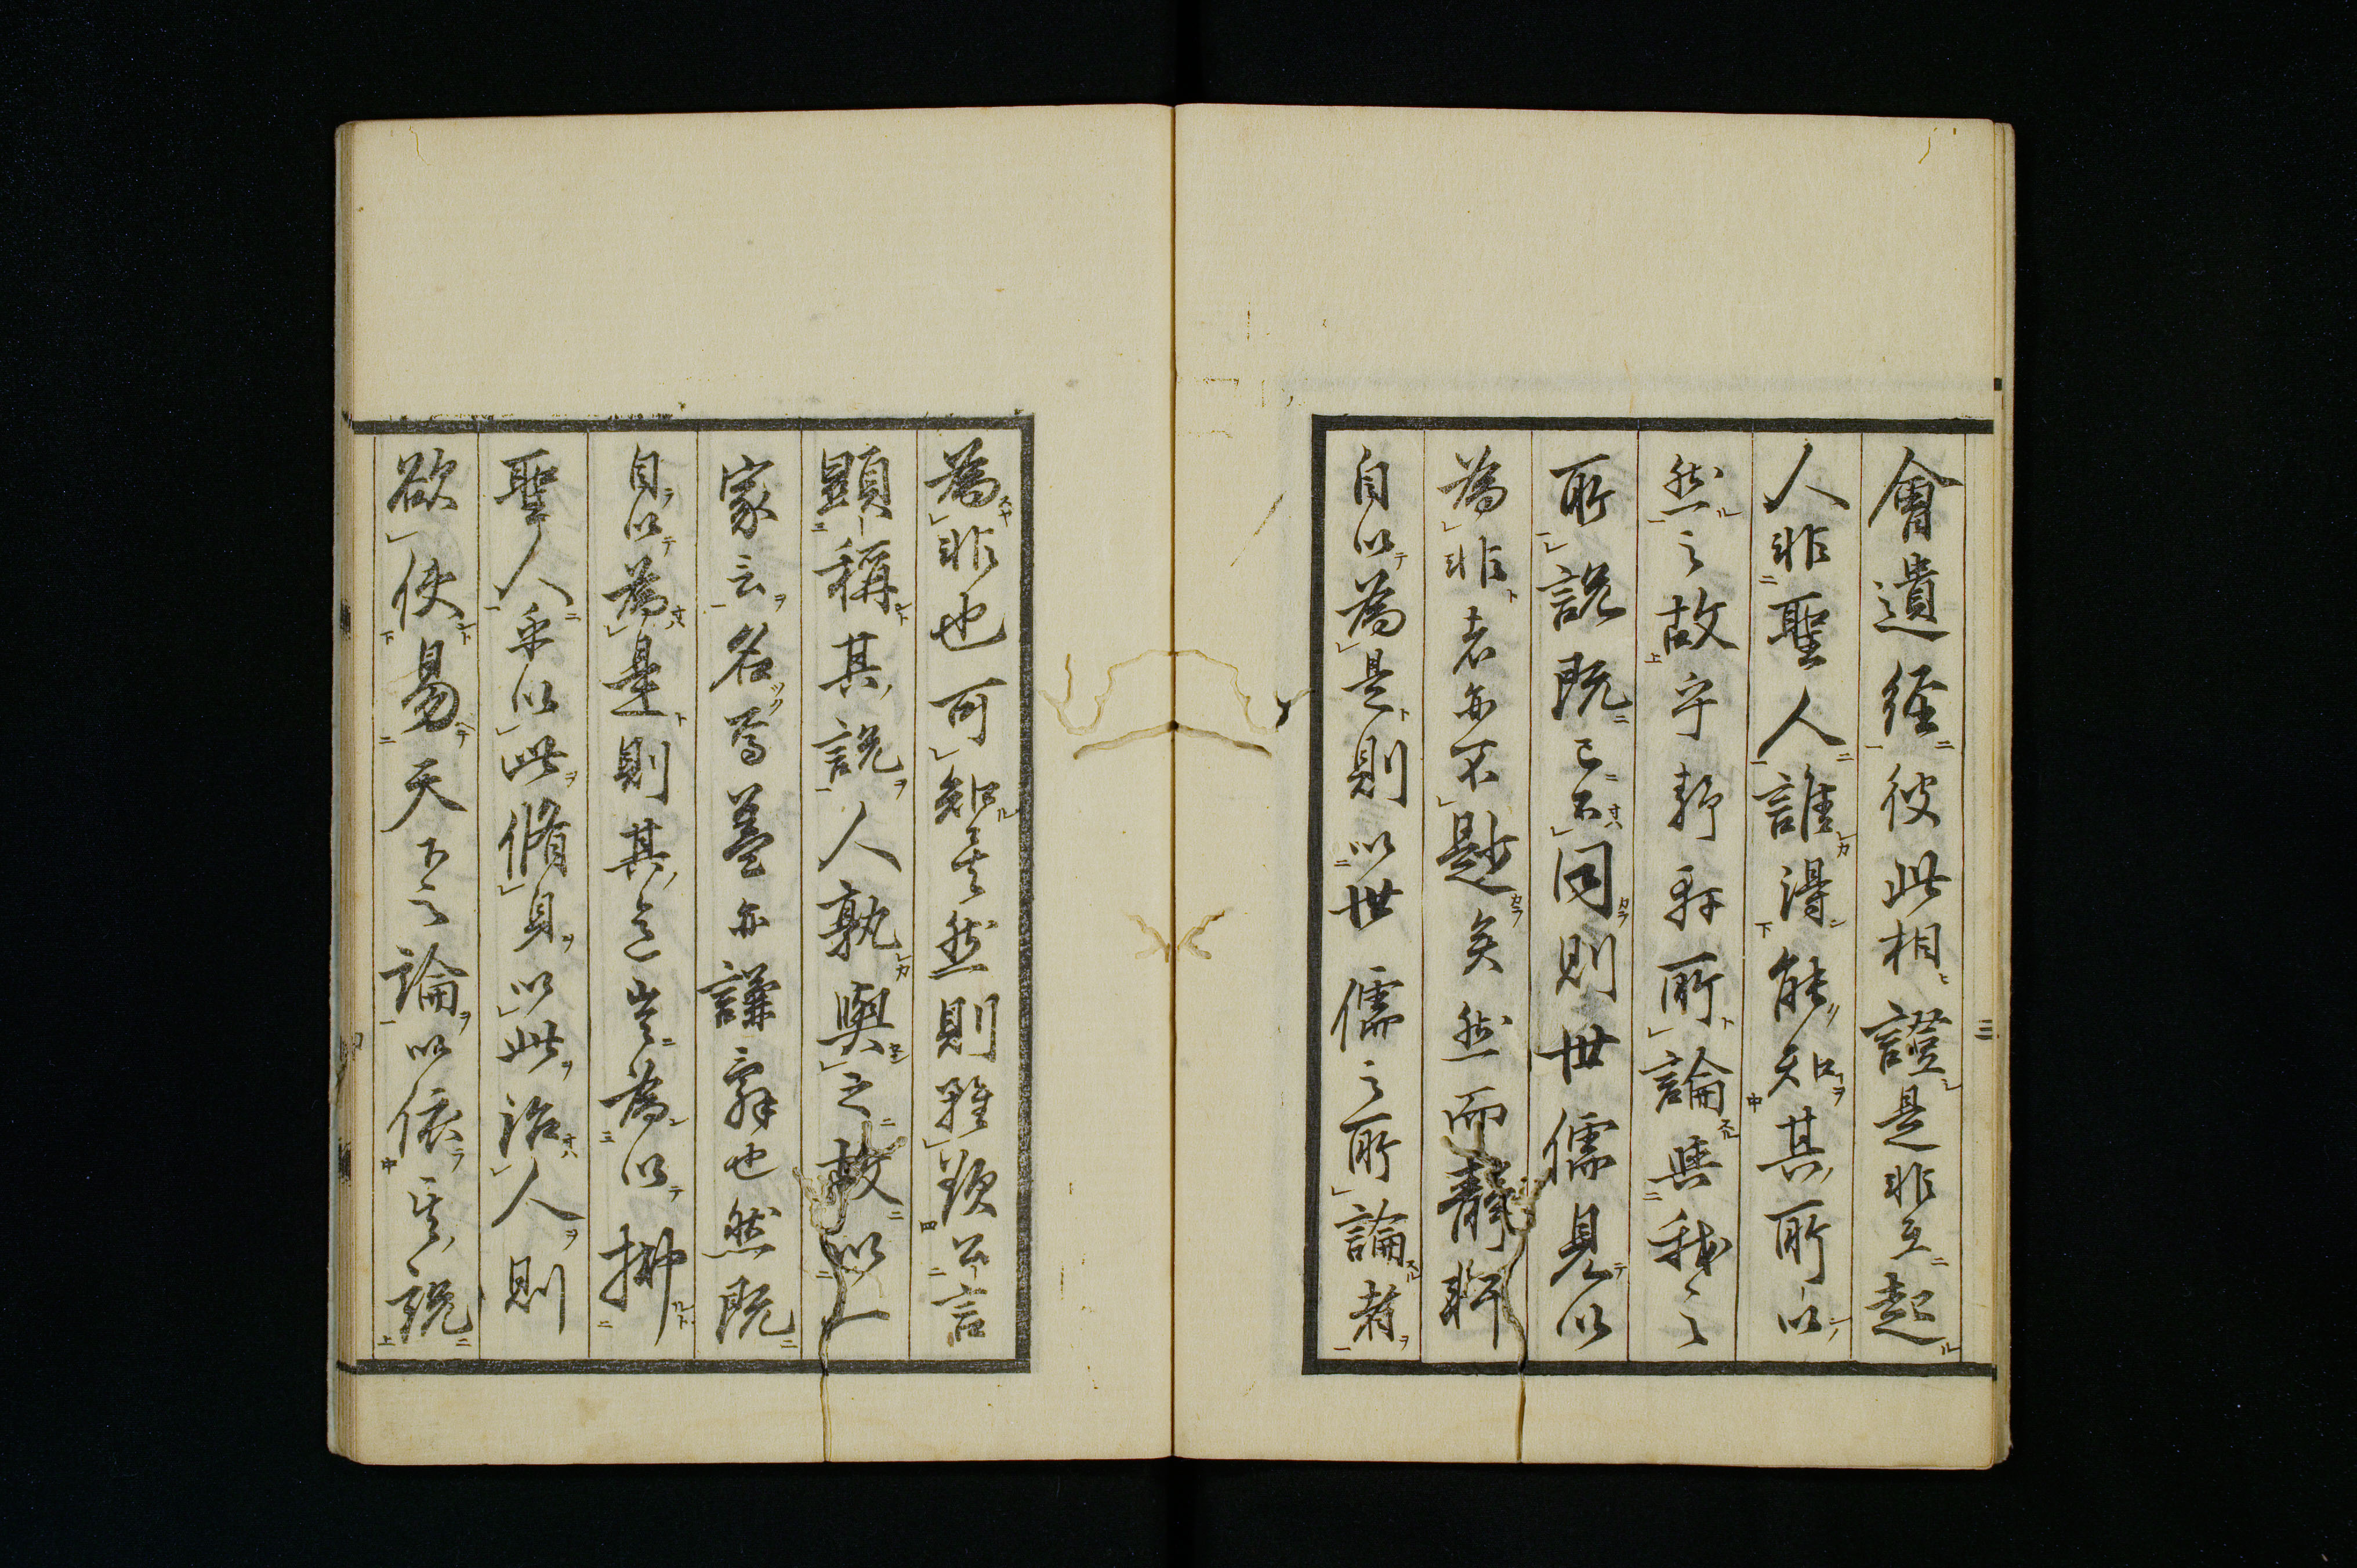 會遺經彼此相證是非互起
人非聖人誰得能知其所以
然之故乎靜軒所論與我之
所說既已不同則世儒見以
為非者亦不尠矣然而靜軒
自以為是則以世儒之所論者
為非也可知矣然則雖欲公言
顯稱其說人孰與之故以一
家言名焉蓋亦謙辭也然既
自以為是則其意豈為以掛
聖人乎以此脩身以此治人則
欲使易天下之論以依其說
三